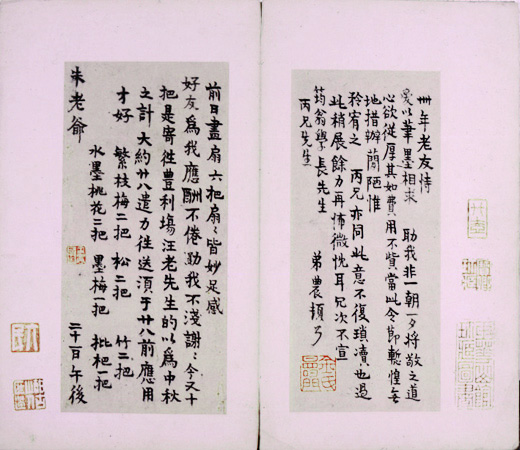 卅年老友恃
愛以筆墨相求　助我非一朝一夕將敬之道
心欲從厚其如費用不貲當此令節輒惶無
地措辦簡陋惟
矜宥之　丙兄亦同此意不復瑣瀆也過
此稍展餘力再佈微忱耳　次不宣
筠翁學長先生　弟農頓
丙兄先生
前日畫扇六把扇〻皆妙足感
好友為我應酬不倦助我不淺謝〻今又十
把是寄徃豐利場汪老先生的以為中秋
之計大約廿八遣力往送須于廿八前應用
才好　繁枝梅二把　松二把　竹二把
水墨桃花二把　墨梅一把　枇杷一把
朱老爺　二十一日午後